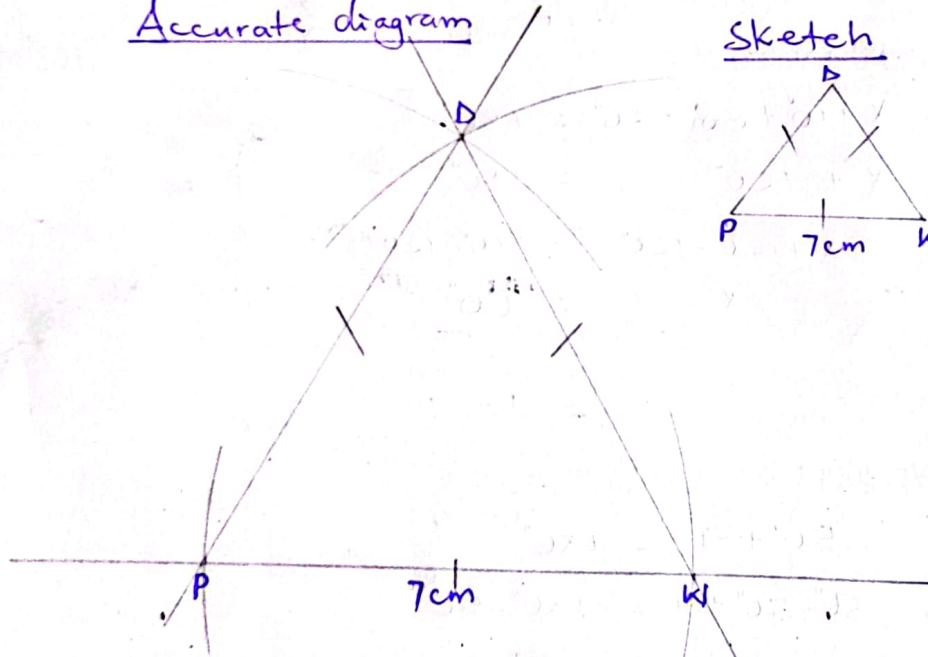 Accurate diagram
Sketch
D
D
P
7cm
P
7cm
W